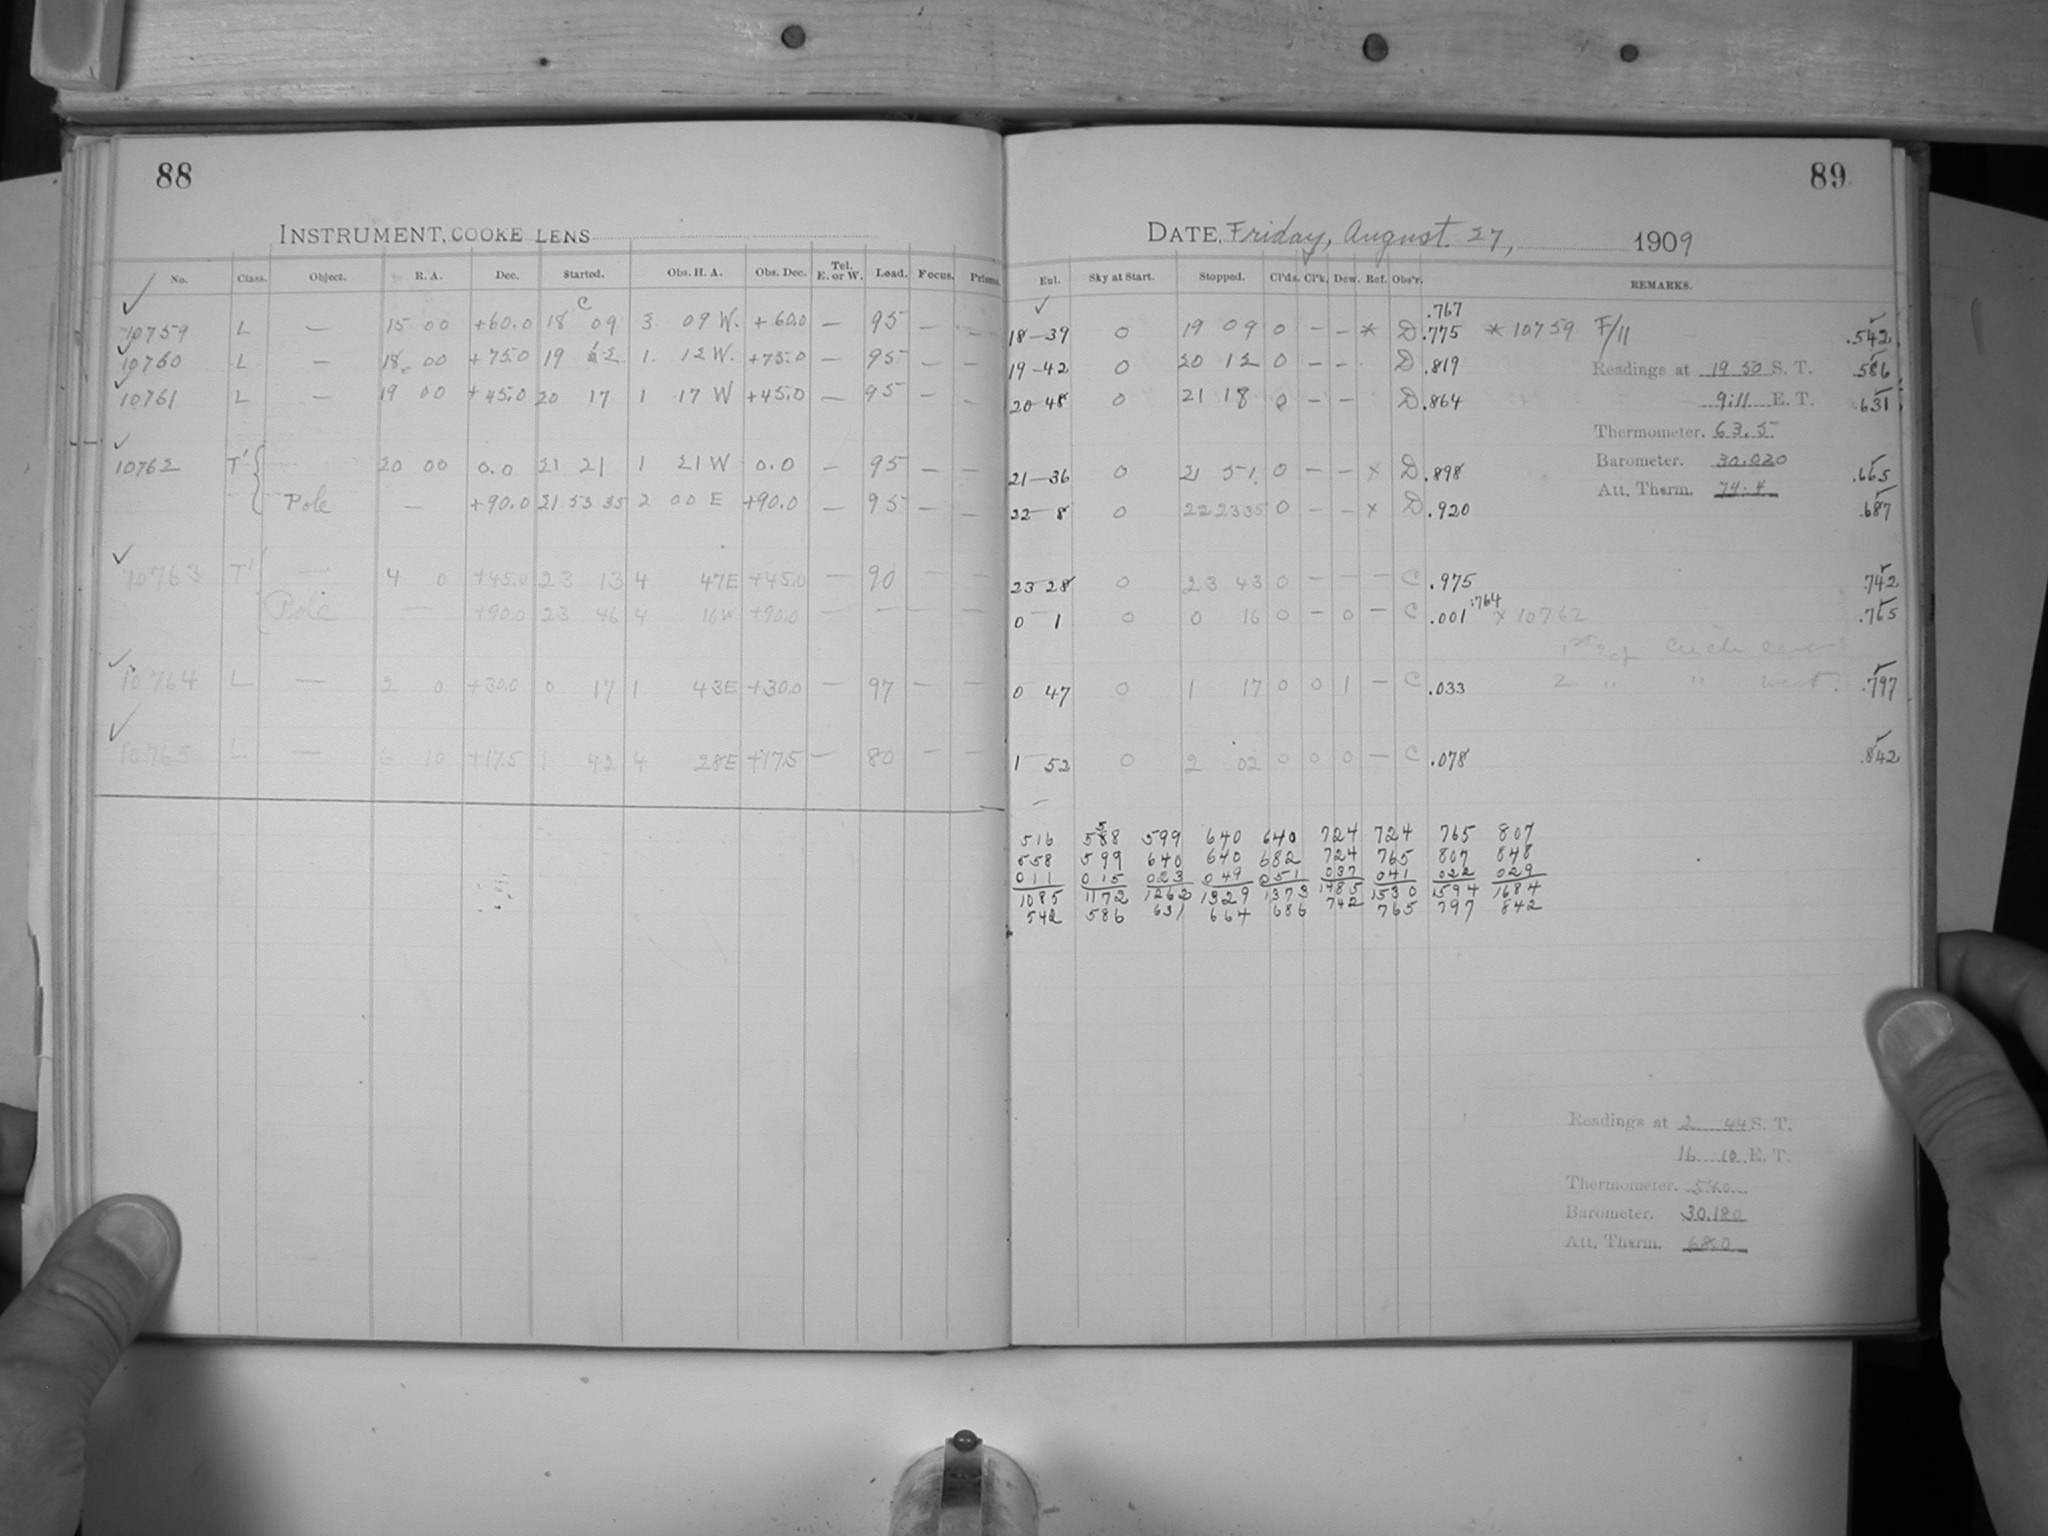 88
INSTRUMENT, COOKE LENS
No. Class. Object. R. A. Dec. Started. Obs. H. A. Obs. Dec. Tel. E. or W. Lead. Focus. Prisms.
10759 L — 15 00 +60.0 18 09 3 09 W. +60.0 — 95 — —
10760 L — 18 00 +75.0 19 42 1 12 W. +75.0 — 95 — —
10761 L — 19 00 +45.0 20 17 1 17 W +45.0 — 95 — —
10762 T' 20 00 0.0 21 21 1 21 W 0.0 — 95 — —
Pole — +90.0 21 53 35 2 00 E +90.0 — 95 — —
10763 T' — 4 0 +45.0 23 13 4 47E +45.0 — 90 — —
Pole — +90.0 23 46 4 16W +90.0 — — — —
10764 L — 2 0 +30.0 0 17 1 43E +30.0 — 97 — —
10765 L — 6 10 +17.5 1 42 4 28E +17.5 — 80 — —
89
DATE, Friday, August 27, 1909
Enl. Sky at Start. Stopped. Cl'ds. Cl'k. Dew. Ref. Obs'r. REMARKS.
.767
18-39 0 19 09 0 — — * D .775 * 10759 F/11 .542
19-42 0 20 12 0 — — D .819 Readings at 19 50 S. T. .586
20-48 0 21 18 0 — — D .864 9:11 E. T. .631
Thermometer. 63.5
Barometer. 30.020
21-36 0 21 51 0 — — x D .898 .665
Att. Therm. 74.4
22-8 0 22 23 35 0 — — x D .920 .687
23 28 0 23 43 0 — — — C .975 .742
.764
0 1 0 0 16 0 — 0 — C .001 x 10762 .765
0 47 0 1 17 0 0 1 — C .033 2 " " west. .797
1 52 0 2 02 0 0 0 — C .078 .842
516 588 599 640 640 724 724 765 807
558 599 640 640 682 724 765 807 848
011 015 023 049 051 037 041 022 029
1085 1172 1262 1329 1373 1485 1530 1594 1684
542 586 631 664 686 742 765 797 842
Readings at 2 44 S. T.
16 10 E. T.
Thermometer.
Barometer. 30.180
Att. Therm. 68.0